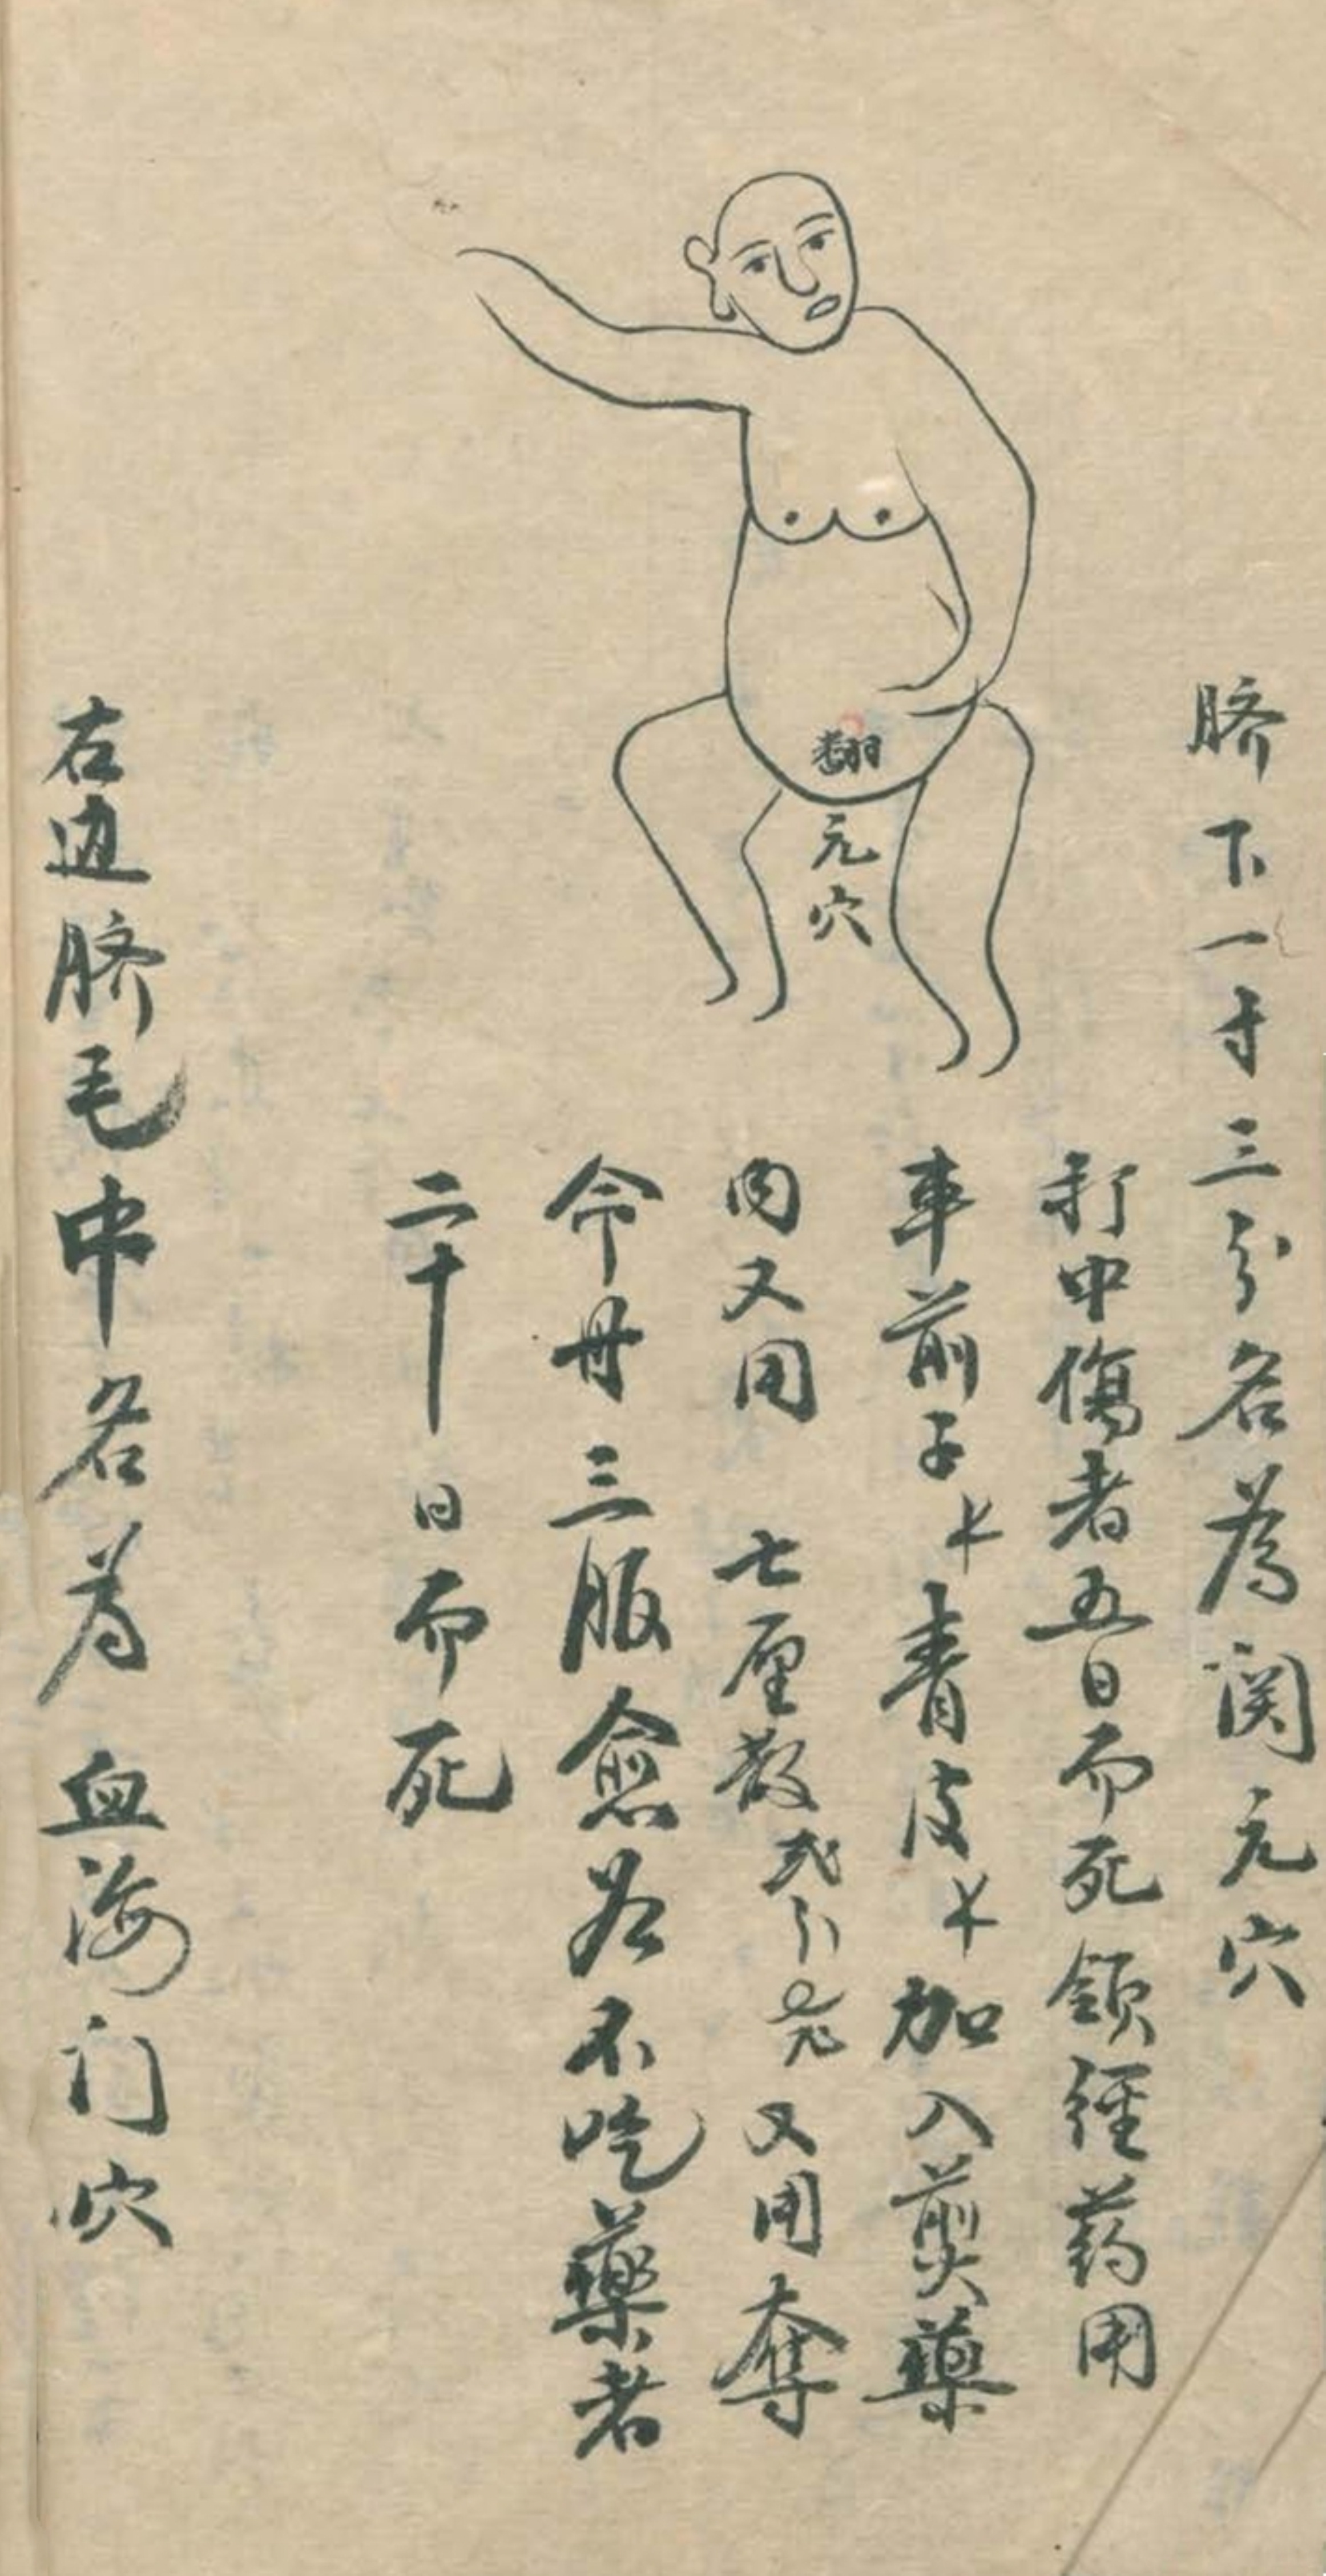 脐下一寸三分名為関元穴
打中傷者五日而死領經葯用
車前子 青皮 加入煎藥
内又用 七厘散弍分 又用奪
命丹三服愈若不吃藥者
二十日而死
右边脐毛中名为血海门穴
元穴